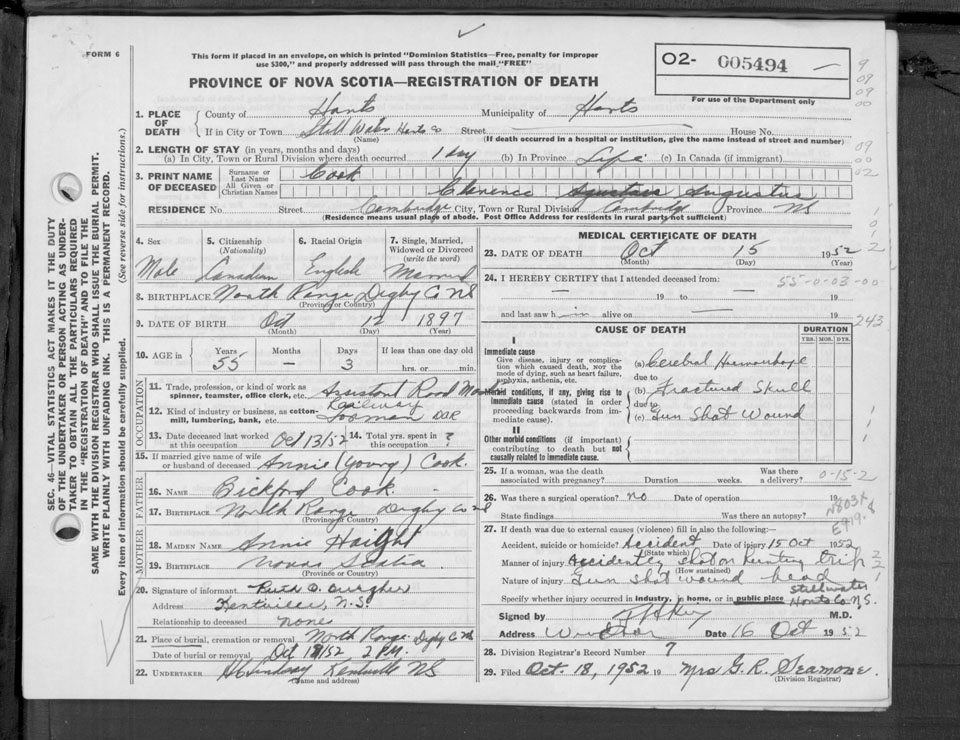 FORM 6
This form if placed in an envelope, on which is printed "Dominion Statistics—Free, penalty for improper
use $300," and properly addressed will pass through the mail "FREE"
PROVINCE OF NOVA SCOTIA—REGISTRATION OF DEATH
O2- 005494 —
For use of the Department only
1. PLACE OF DEATH County of Hants Municipality of Hants
If in City or Town Still Water Hants Co Street House No.
(Name) (If death occurred in a hospital or institution, give the name instead of street and number)
2. LENGTH OF STAY (in years, months and days)
(a) In City, Town or Rural Division where death occurred 1 day (b) In Province Life (c) In Canada (if immigrant)
3. PRINT NAME OF DECEASED Surname or Last Name Cook
All Given or Christian Names Clarence Augustus
RESIDENCE No. Street Cambridge City, Town or Rural Division Cambridge Province NS
(Residence means usual place of abode. Post Office Address for residents in rural parts not sufficient)
4. Sex 5. Citizenship (Nationality) 6. Racial Origin 7. Single, Married, Widowed or Divorced (write the word)
Male Canadian English Married
8. BIRTHPLACE North Range Digby Co NS
(Province or Country)
9. DATE OF BIRTH Oct 12 1897
(Month) (Day) (Year)
10. AGE in Years Months Days If less than one day old
55 — 3 hrs. or min.
OCCUPATION
11. Trade, profession, or kind of work as spinner, teamster, office clerk, etc.
12. Kind of industry or business, as cotton-mill, lumbering, bank, etc. Railway DAR
13. Date deceased last worked at this occupation Oct 13/52 14. Total yrs. spent in this occupation ?
15. If married give name of wife or husband of deceased Annie (Young) Cook.
FATHER
16. NAME Bickford Cook
17. BIRTHPLACE North Range Digby Co NS
(Province or Country)
MOTHER
18. MAIDEN NAME Annie Haight
19. BIRTHPLACE Nova Scotia
(Province or Country)
20. Signature of informant
Address Kentville, N.S.
Relationship to deceased none
21. Place of burial, cremation or removal North Range Digby Co NS
Date of burial or removal Oct 18/52 2 P.M.
22. UNDERTAKER Kentville NS
(Name and address)
MEDICAL CERTIFICATE OF DEATH
23. DATE OF DEATH Oct 15 1952
(Month) (Day) (Year)
24. I HEREBY CERTIFY that I attended deceased from:
— 19 to — 19
and last saw h alive on 19
55-0-03-00
243
CAUSE OF DEATH DURATION
YRS. MOS. DYS.
I
Immediate cause
Give disease, injury or complication which caused death, not the mode of dying, such as heart failure, asphyxia, asthenia, etc.
(a) Cerebral Haemorrhage
due to
Morbid conditions, if any, giving rise to immediate cause (stated in order proceeding backwards from immediate cause).
(b) Fractured Skull
due to
(c) Gun Shot Wound
II
Other morbid conditions (if important) contributing to death but not causally related to immediate cause.
25. If a woman, was the death associated with pregnancy? Duration weeks. Was there a delivery?
0-15-2
26. Was there a surgical operation? no Date of operation 19
State findings Was there an autopsy?
N803X
E919.8
27. If death was due to external causes (violence) fill in also the following:—
Accident, suicide or homicide? Accident Date of injury 15 Oct 1952
(State which)
Manner of injury Accidently shot on hunting trip
(How sustained)
Nature of injury Gun shot wound head
Specify whether injury occurred in industry, in home, or in public place Stillwater Hants Co N.S.
Signed by M.D.
Address Windsor Date 16 Oct 1952
28. Division Registrar's Record Number 7
29. Filed Oct. 18, 1952 19 Mrs G. R. Seamone.
(Division Registrar)
SEC. 46—VITAL STATISTICS ACT MAKES IT THE DUTY
OF THE UNDERTAKER OR PERSON ACTING AS UNDER-
TAKER TO OBTAIN ALL THE PARTICULARS REQUIRED
IN THE "REGISTRATION OF DEATH" AND TO FILE THE
SAME WITH THE DIVISION REGISTRAR WHO SHALL ISSUE THE BURIAL PERMIT.
WRITE PLAINLY WITH UNFADING INK. THIS IS A PERMANENT RECORD.
Every item of information should be carefully supplied. (See reverse side for instructions.)